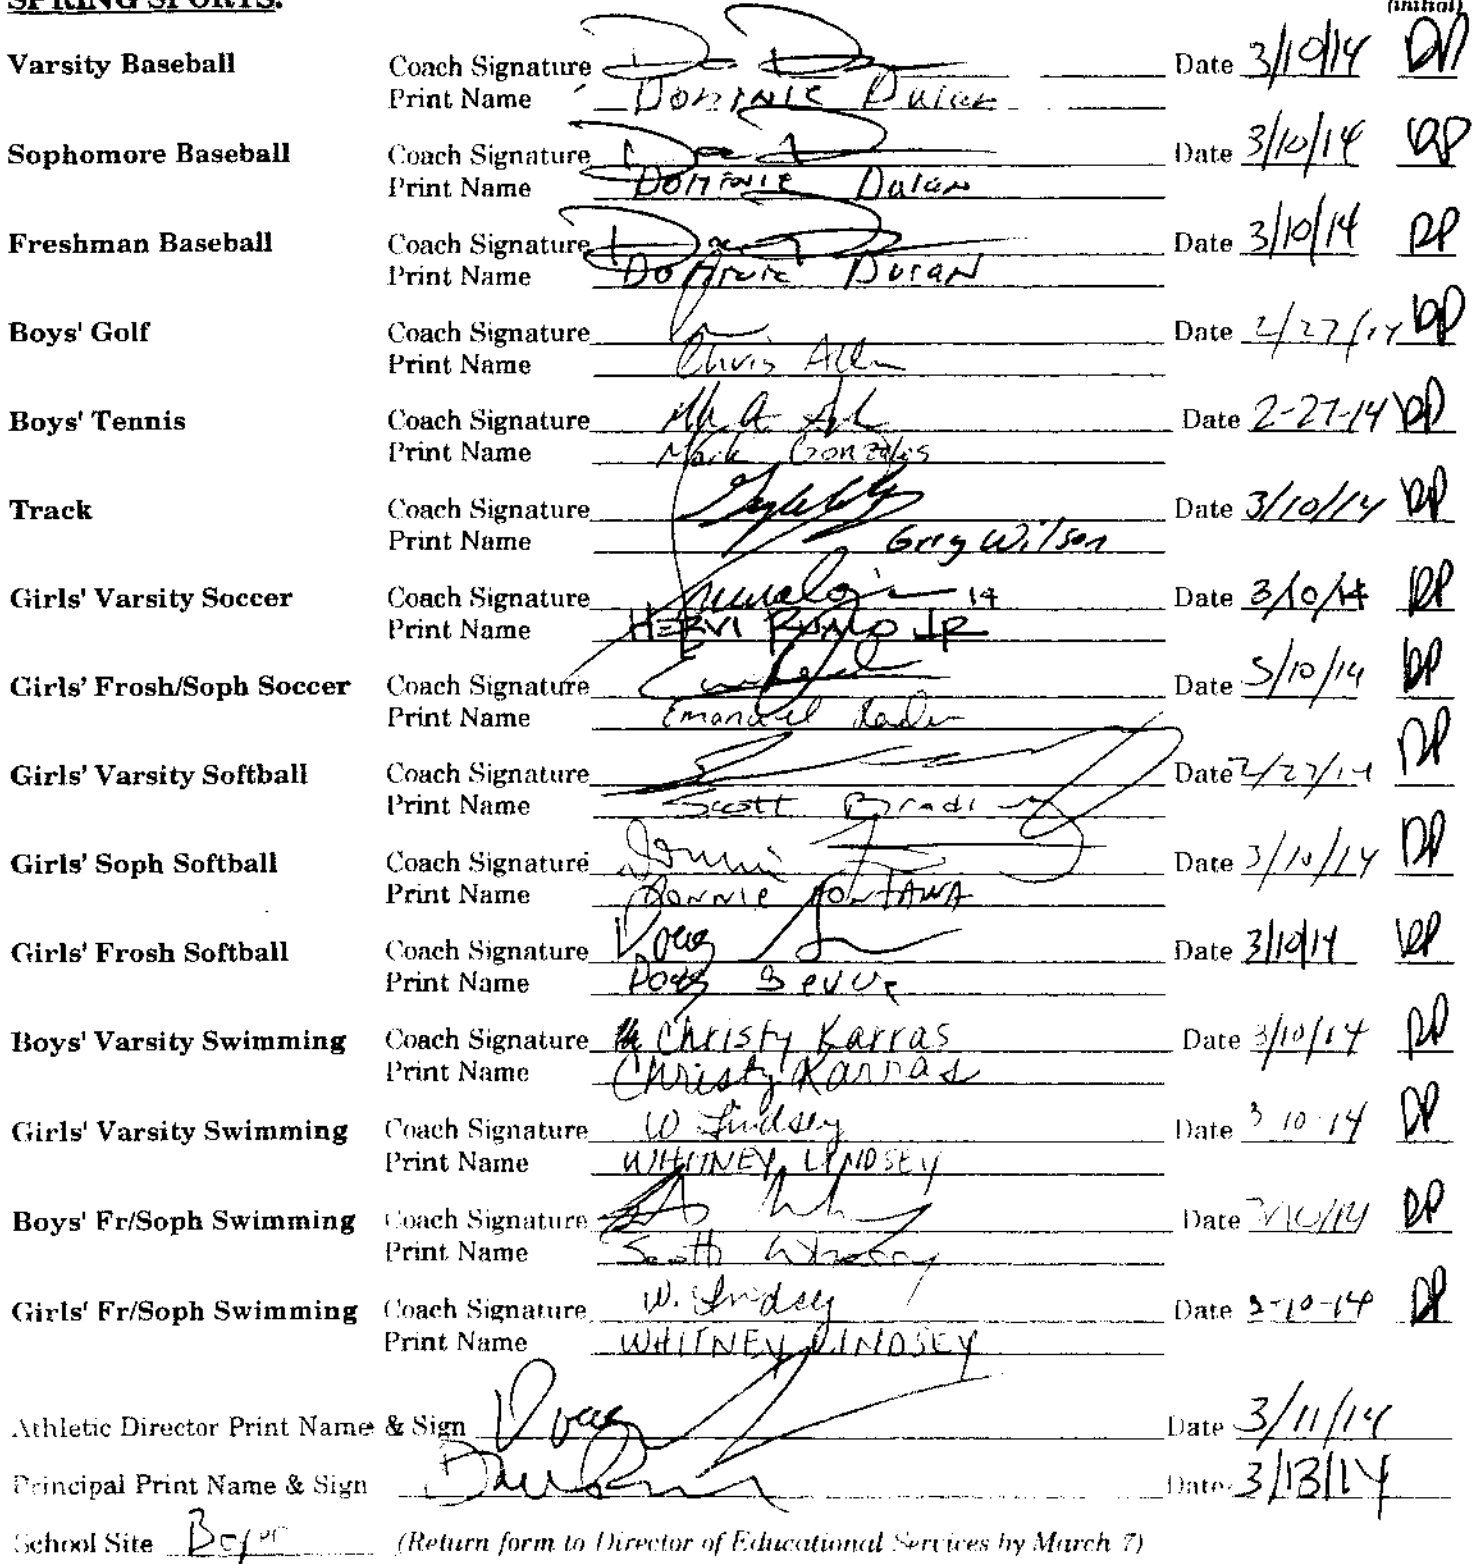 SPRING SPORTS:
(initial)
Varsity Baseball Coach Signature Date 3/10/14 DP
Print Name Dominic Duran
Sophomore Baseball Coach Signature Date 3/10/14 DP
Print Name Dominic Duran
Freshman Baseball Coach Signature Date 3/10/14 DP
Print Name Dominic Duran
Boys' Golf Coach Signature Date 2/27/14 DP
Print Name Chris Allen
Boys' Tennis Coach Signature Date 2-27-14 DP
Print Name Mark Gonzales
Track Coach Signature Date 3/10/14 DP
Print Name Greg Wilson
Girls' Varsity Soccer Coach Signature 14 Date 3/10/14 DP
Print Name HERVI JR
Girls' Frosh/Soph Soccer Coach Signature Date 3/10/14 DP
Print Name Emanuel
Girls' Varsity Softball Coach Signature Date 2/27/14 DP
Print Name Scott
Girls' Soph Softball Coach Signature Date 3/10/14 DP
Print Name
Girls' Frosh Softball Coach Signature Doug Date 3/10/14 DP
Print Name Doug
Boys' Varsity Swimming Coach Signature Christy Karras Date 3/10/14 DP
Print Name Christy Karras
Girls' Varsity Swimming Coach Signature W Lindsey Date 3 10-14 DP
Print Name WHITNEY LINDSEY
Boys' Fr/Soph Swimming Coach Signature Date 3/10/14 DP
Print Name Scott
Girls' Fr/Soph Swimming Coach Signature W. Lindsey Date 3-10-14 DP
Print Name WHITNEY LINDSEY
Athletic Director Print Name & Sign Doug Date 3/11/14
Principal Print Name & Sign Date 3/13/14
School Site (Return form to Director of Educational Services by March 7)